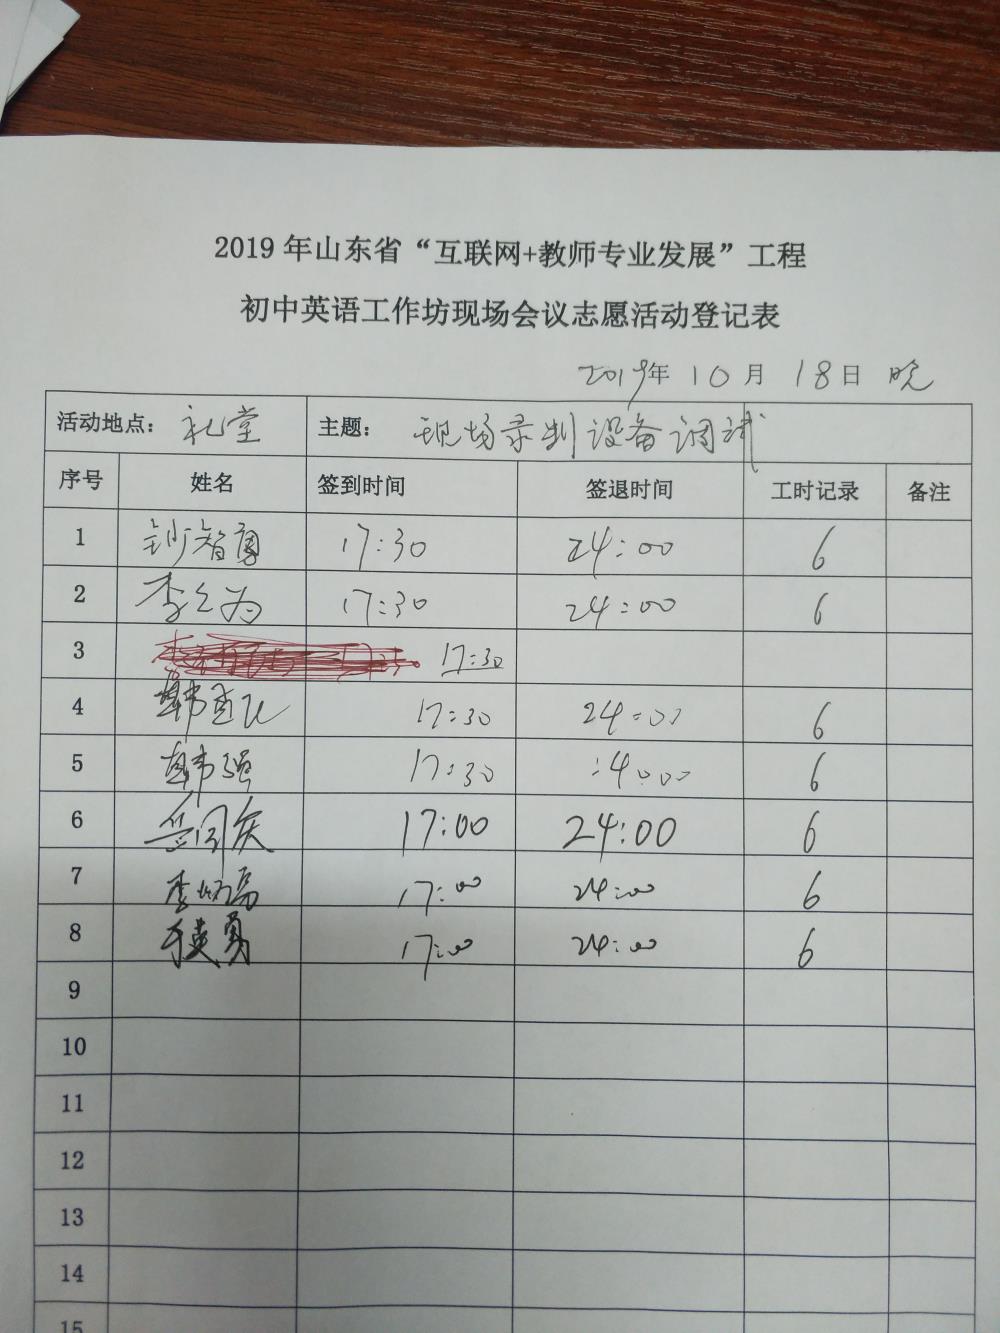 2019 年山东省“互联网+教师专业发展”工程
初中英语工作坊现场会议志愿活动登记表
2019年 10 月 18 日 晚
活动地点： 礼堂 主题： 现场录制设备调试
序号 姓名 签到时间 签退时间 工时记录 备注
1 智勇 17:30 24:00 6
2 李 为 17:30 24:00 6
3 17:30
4 韩 17:30 24:00 6
5 韩强 17:30 :4:00 6
6 17:00 24:00 6
7 李 17:00 24:00 6
8 勇 17:00 24:00 6
9
10
11
12
13
14
15